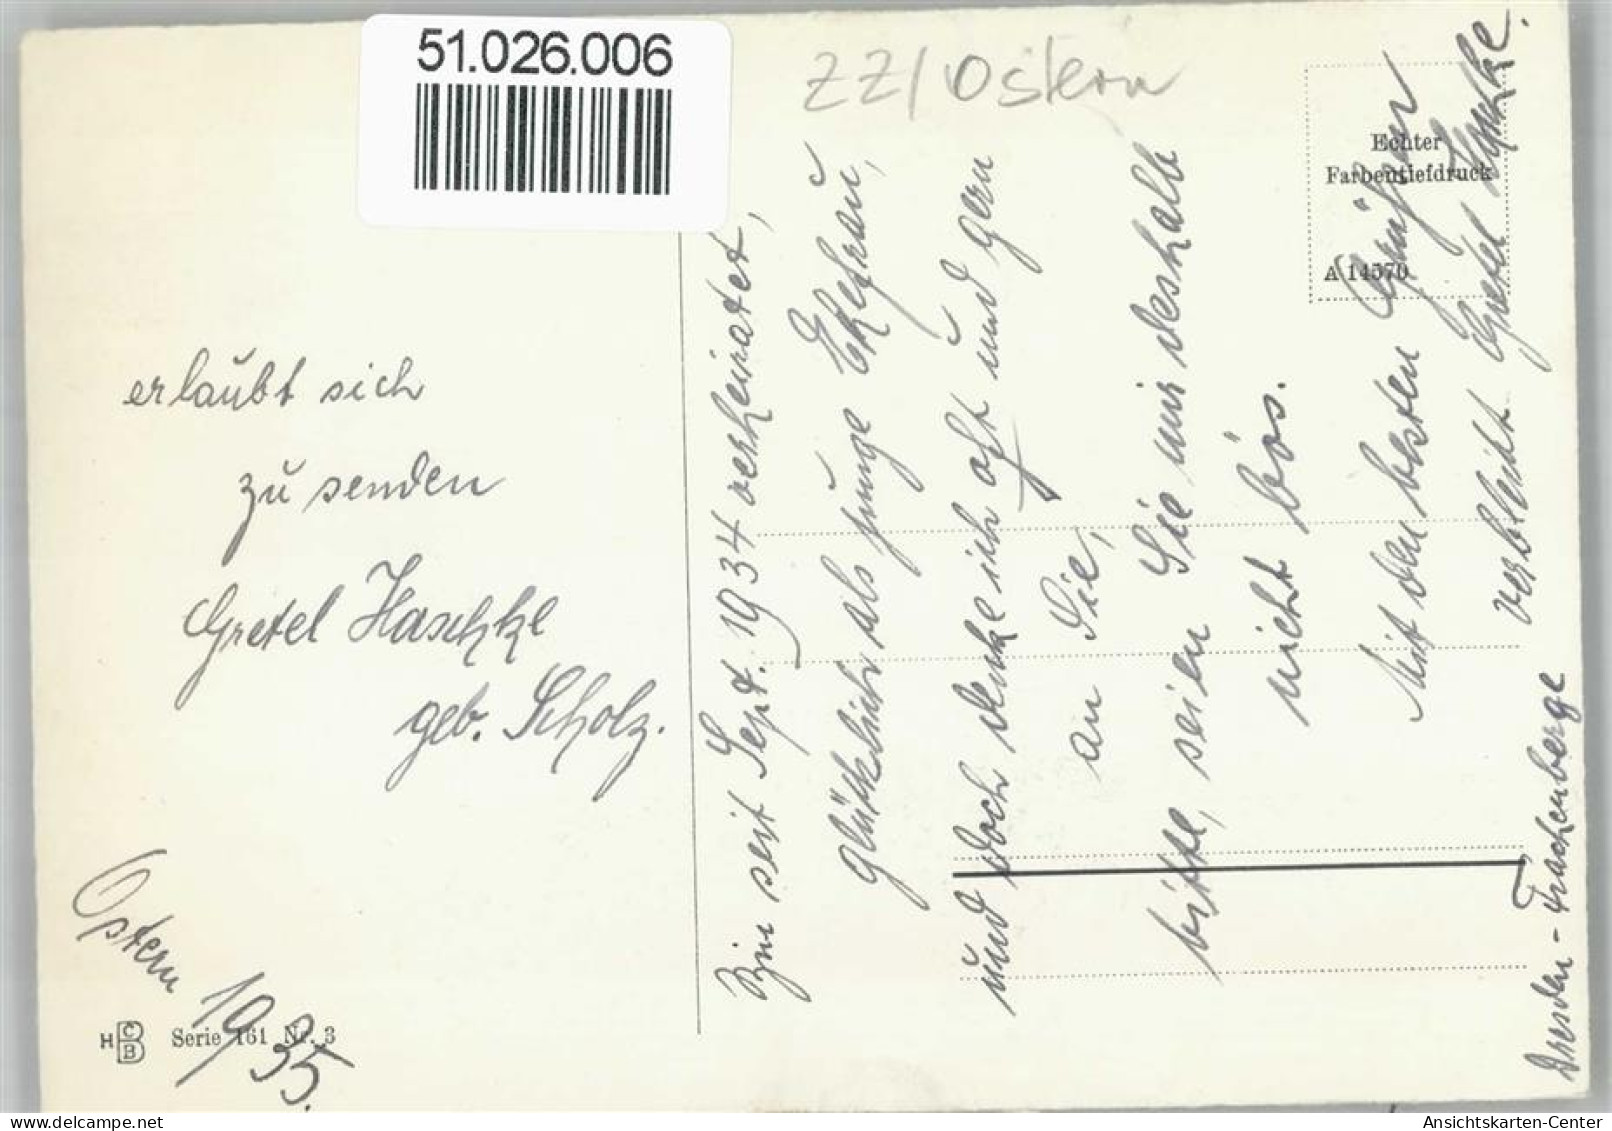 51.026.006
ZZ/Ostern
Echter
Farbentiefdruck
A 14570
erlaubt sich
zu senden
Gretel Haschke
geb. Scholz.
Ostern 1935.
HCBB Serie 161 Nr. 3
Bin seit Sept. 1934 verheiratet,
glücklich als junge Ehefrau,
und doch denke ich oft und gern
an Sie,
bitte, seien Sie mir deshalb
nicht bös.
Mit den besten Grüßen
verbleibt Gretel Haschke.
Dresden - Trachenberge
Ansichtskarten-Center